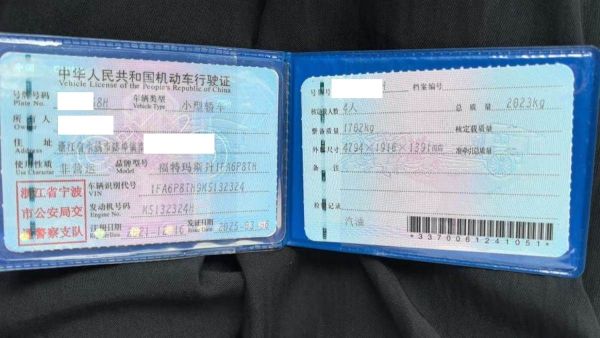 中华人民共和国机动车行驶证
Vehicle License of the People's Republic of China
号牌号码 8H 车辆类型 小型轿车
Plate No. Vehicle Type
所有人
Owner
住址 浙江省
Address
使用性质 非营运 品牌型号 福特玛斯丹1FA6P8TH
Use Character
浙江省宁波市公安局交通警察支队
车辆识别代号 1FA6P8TH9K5132324
VIN
发动机号码 K5132324H
Engine No.
注册日期 2021-12-16 发证日期
Register Date Issue Date
号牌号码 H 档案编号
核定载人数 4人 总质量 2023Kg
整备质量 1702Kg 核定载质量
外廓尺寸 4794×1916×1391mm 准牵引总质量
备注
检验记录
汽油
*3370061241051*